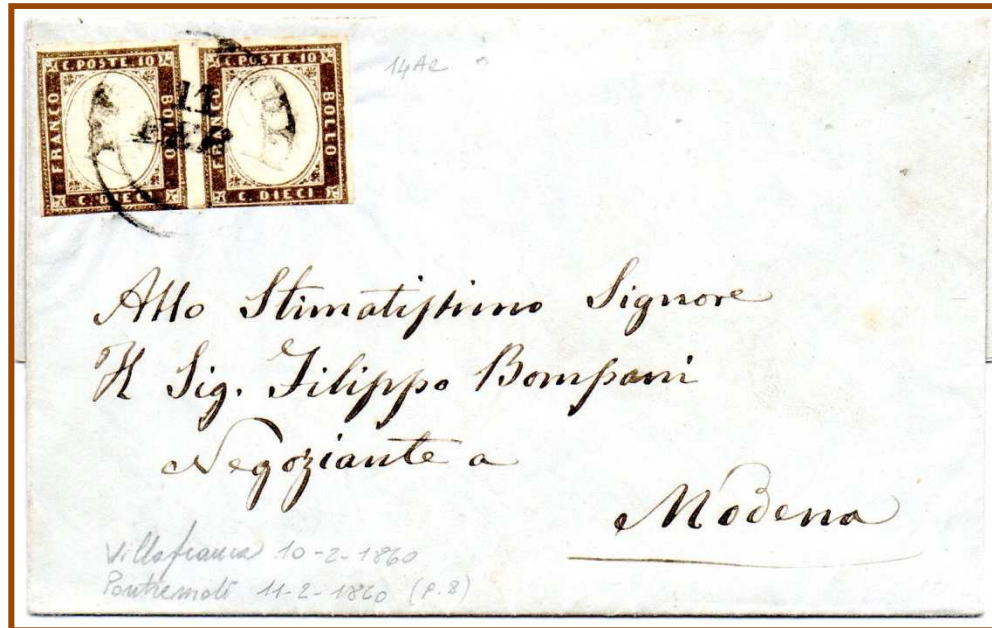 C. POSTE. 10
FRANCO
BOLLO
C. DIECI
C. POSTE. 10
FRANCO
BOLLO
C. DIECI
11
FEB
14Ae
Allo Stimatissimo Signore
Il Sig. Filippo Bompani
Negoziante a
Modena
Villafranca 10-2-1860
Pontremoli 11-2-1860 (P.8)